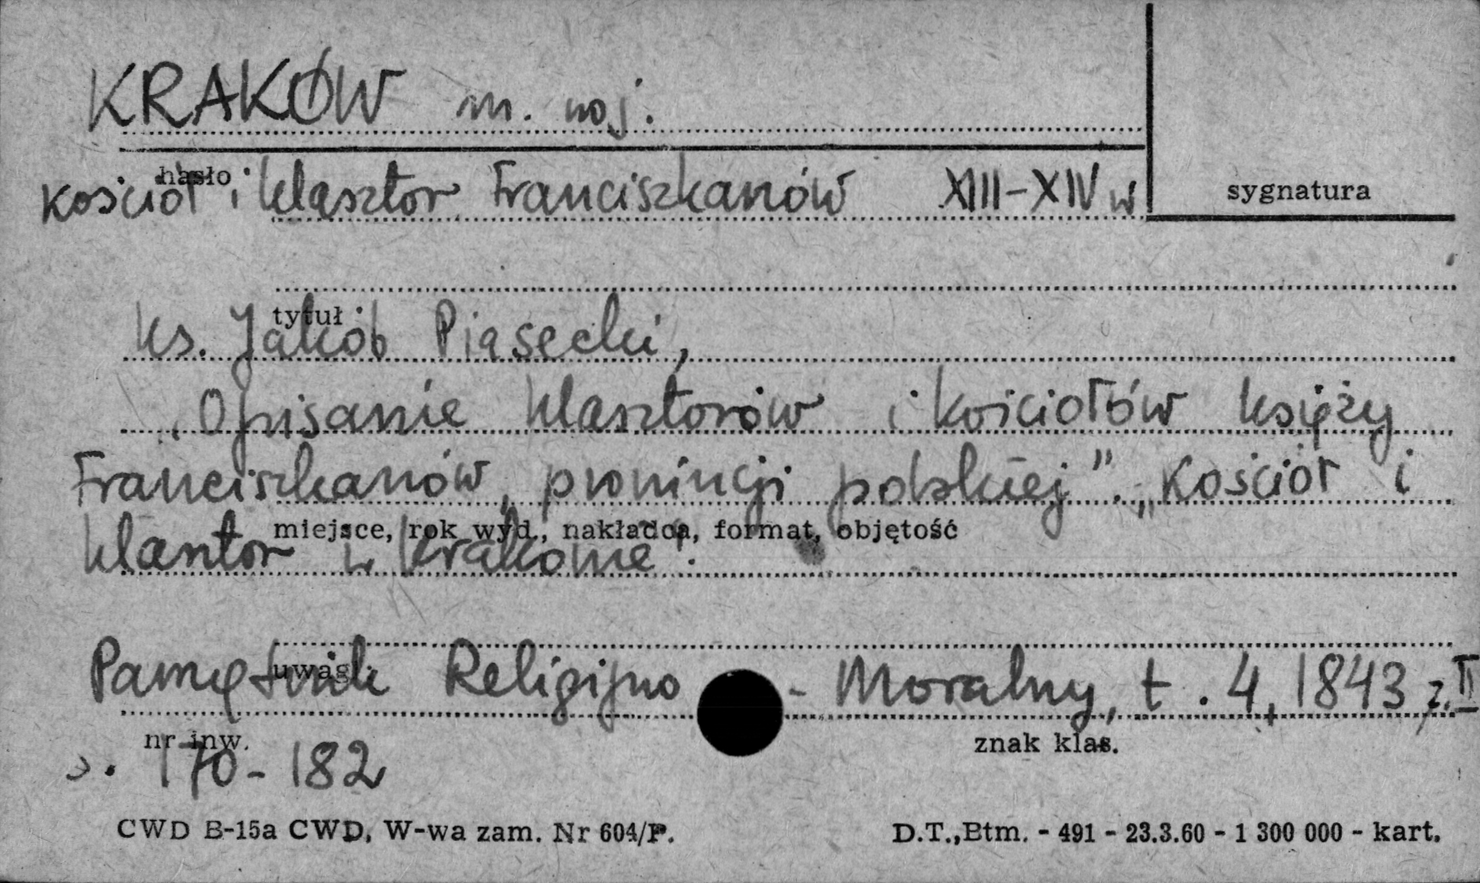 KRAKÓW m. woj.
hasło
kościół i klasztor Franciszkanów XIII-XIV w
sygnatura
tytuł
ks. Jakób Piasecki,
"Opisanie klasztorów i kościołów księży
Franciszkanów, prowincji polskiej". "Kościół i
miejsce, rok wyd., nakładca, format, objętość
klasztor w Krakowie".
uwagi
Pamiętnik Religijno - Moralny, t. 4, 1843 z. II
nr inw.
znak klas.
s. 170-182
CWD B-15a CWD, W-wa zam. Nr 604/P.
D.T.,Btm. - 491 - 23.3.60 - 1 300 000 - kart.